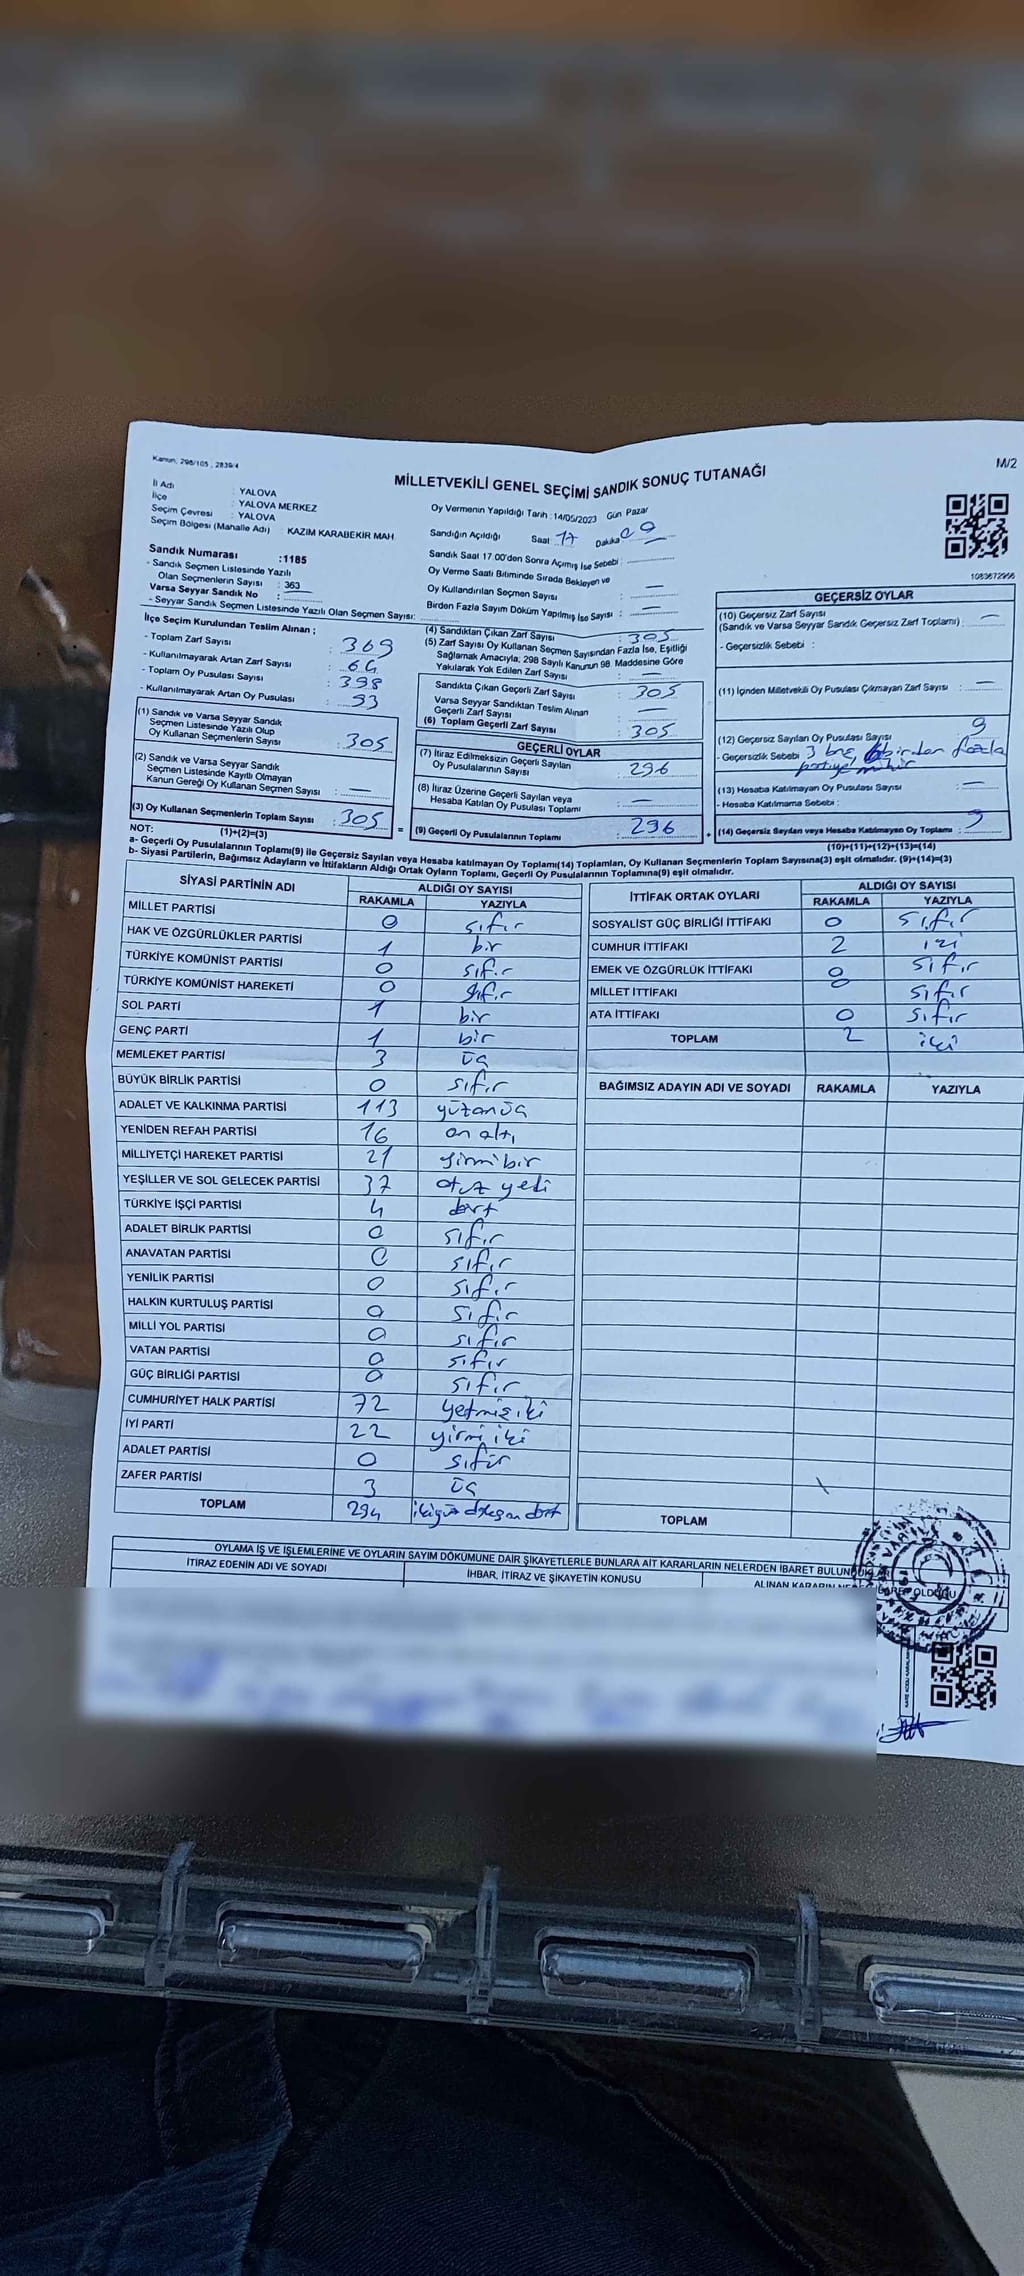 Kanun, 298/105 , 2839/4
M/2
MİLLETVEKİLİ GENEL SEÇİMİ SANDIK SONUÇ TUTANAĞI
İl Adı : YALOVA
İlçe : YALOVA MERKEZ
Seçim Çevresi : YALOVA
Seçim Bölgesi (Mahalle Adı) : KAZIM KARABEKİR MAH
Sandık Numarası :1185
- Sandık Seçmen Listesinde Yazılı
Olan Seçmenlerin Sayısı : 363
Varsa Seyyar Sandık No :
- Seyyar Sandık Seçmen Listesinde Yazılı Olan Seçmen Sayısı:
Oy Vermenin Yapıldığı Tarih :14/05/2023 Gün Pazar
Sandığın Açıldığı Saat 17 Dakika 09
Sandık Saat 17.00'den Sonra Açımış İse Sebebi :
Oy Verme Saati Bitiminde Sırada Bekleyen ve
Oy Kullandırılan Seçmen Sayısı : —
Birden Fazla Sayım Döküm Yapılmış İse Sayısı : —
1083672966
İlçe Seçim Kurulundan Teslim Alınan ;
- Toplam Zarf Sayısı : 369
- Kullanılmayarak Artan Zarf Sayısı : 64
- Toplam Oy Pusulası Sayısı : 398
- Kullanılmayarak Artan Oy Pusulası : 93
(1) Sandık ve Varsa Seyyar Sandık
Seçmen Listesinde Yazılı Olup
Oy Kullanan Seçmenlerin Sayısı : 305
(2) Sandık ve Varsa Seyyar Sandık
Seçmen Listesinde Kayıtlı Olmayan
Kanun Gereği Oy Kullanan Seçmen Sayısı : —
(3) Oy Kullanan Seçmenlerin Toplam Sayısı : 305
(4) Sandıktan Çıkan Zarf Sayısı : 305
(5) Zarf Sayısı Oy Kullanan Seçmen Sayısından Fazla İse, Eşitliği
Sağlamak Amacıyla, 298 Sayılı Kanunun 98. Maddesine Göre
Yakılarak Yok Edilen Zarf Sayısı : —
Sandıkta Çıkan Geçerli Zarf Sayısı : 305
Varsa Seyyar Sandıktan Teslim Alınan
Geçerli Zarf Sayısı : —
(6) Toplam Geçerli Zarf Sayısı : 305
GEÇERLİ OYLAR
(7) İtiraz Edilmeksizin Geçerli Sayılan
Oy Pusulalarının Sayısı : 296
(8) İtiraz Üzerine Geçerli Sayılan veya
Hesaba Katılan Oy Pusulası Toplamı : —
= (9) Geçerli Oy Pusulalarının Toplamı : 296 +
GEÇERSİZ OYLAR
(10) Geçersiz Zarf Sayısı
(Sandık ve Varsa Seyyar Sandık Geçersiz Zarf Toplamı) : —
- Geçersizlik Sebebi :
(11) İçinden Milletvekili Oy Pusulası Çıkmayan Zarf Sayısı : —
(12) Geçersiz Sayılan Oy Pusulası Sayısı : 9
- Geçersizlik Sebebi birden fazla
(13) Hesaba Katılmayan Oy Pusulası Sayısı : —
- Hesaba Katılmama Sebebi :
(14) Geçersiz Sayılan veya Hesaba Katılmayan Oy Toplamı : 9
NOT: (1)+(2)=(3)
(10)+(11)+(12)+(13)=(14)
a- Geçerli Oy Pusulalarının Toplamı(9) ile Geçersiz Sayılan veya Hesaba katılmayan Oy Toplamı(14) Toplamları, Oy Kullanan Seçmenlerin Toplam Sayısına(3) eşit olmalıdır. (9)+(14)=(3)
b- Siyasi Partilerin, Bağımsız Adayların ve İttifakların Aldığı Ortak Oyların Toplamı, Geçerli Oy Pusulalarının Toplamına(9) eşit olmalıdır.
SİYASİ PARTİNİN ADI ALDIĞI OY SAYISI
RAKAMLA YAZIYLA
MİLLET PARTİSİ 0 sıfır
HAK VE ÖZGÜRLÜKLER PARTİSİ 1 bir
TÜRKİYE KOMÜNİST PARTİSİ 0 sıfır
TÜRKİYE KOMÜNİST HAREKETİ 0 sıfır
SOL PARTİ 1 bir
GENÇ PARTİ 1 bir
MEMLEKET PARTİSİ 3 üç
BÜYÜK BİRLİK PARTİSİ 0 sıfır
ADALET VE KALKINMA PARTİSİ 113 yüzonüç
YENİDEN REFAH PARTİSİ 16 on altı
MİLLİYETÇİ HAREKET PARTİSİ 21 yirmibir
YEŞİLLER VE SOL GELECEK PARTİSİ 37 otuz yedi
TÜRKİYE İŞÇİ PARTİSİ 4 dört
ADALET BİRLİK PARTİSİ 0 sıfır
ANAVATAN PARTİSİ 0 sıfır
YENİLİK PARTİSİ 0 sıfır
HALKIN KURTULUŞ PARTİSİ 0 sıfır
MİLLİ YOL PARTİSİ 0 sıfır
VATAN PARTİSİ 0 sıfır
GÜÇ BİRLİĞİ PARTİSİ 0 sıfır
CUMHURİYET HALK PARTİSİ 72 yetmiş iki
İYİ PARTİ 22 yirmi iki
ADALET PARTİSİ 0 sıfır
ZAFER PARTİSİ 3 üç
TOPLAM 294 ikiyüz doksan dört
İTTİFAK ORTAK OYLARI ALDIĞI OY SAYISI
RAKAMLA YAZIYLA
SOSYALİST GÜÇ BİRLİĞİ İTTİFAKI 0 sıfır
CUMHUR İTTİFAKI 2 iki
EMEK VE ÖZGÜRLÜK İTTİFAKI 0 sıfır
MİLLET İTTİFAKI 0 sıfır
ATA İTTİFAKI 0 sıfır
TOPLAM 2 iki
BAĞIMSIZ ADAYIN ADI VE SOYADI RAKAMLA YAZIYLA
TOPLAM
OYLAMA İŞ VE İŞLEMLERİNE VE OYLARIN SAYIM DÖKÜMUNE DAİR ŞİKAYETLERLE BUNLARA AİT KARARLARIN NELERDEN İBARET BULUNDUĞU
İTİRAZ EDENİN ADI VE SOYADI İHBAR, İTİRAZ VE ŞİKAYETİN KONUSU ALINAN KARARIN NEDEN İBARET OLDUĞU